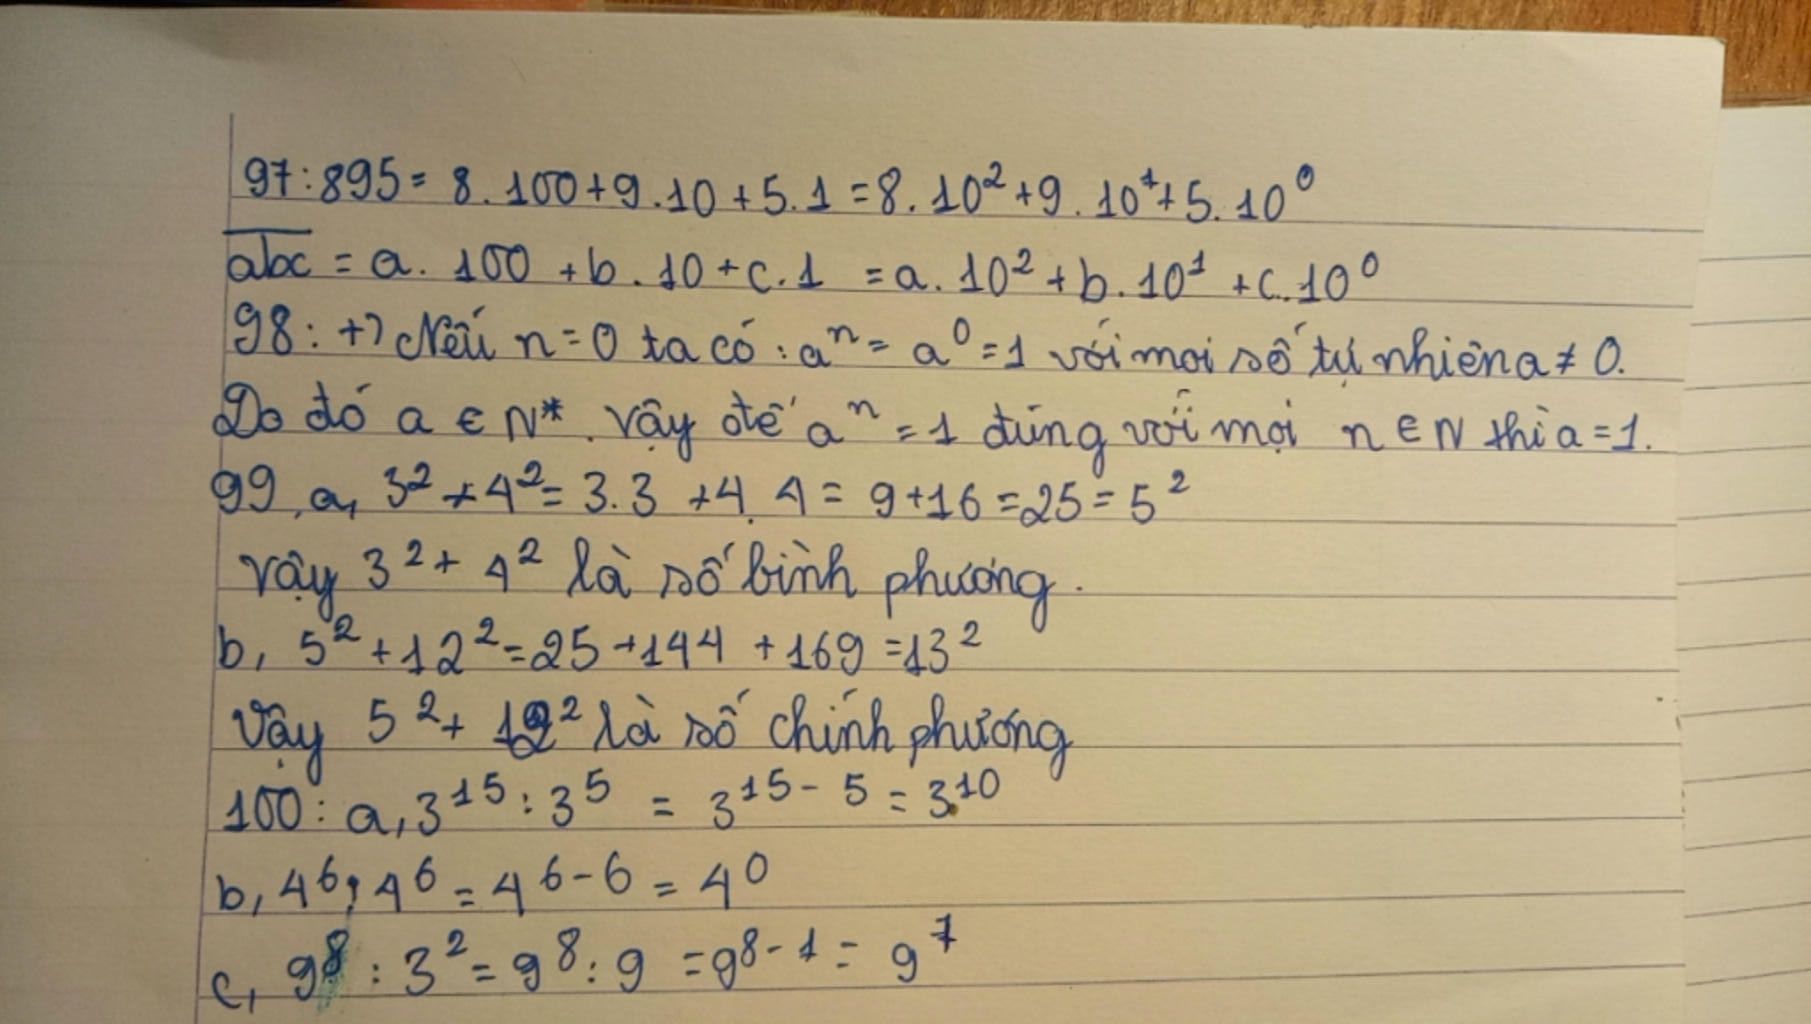 97: 895 = 8.100 + 9.10 + 5.1 = 8.10² + 9.10¹ + 5.10⁰
a̅b̅c̅ = a.100 + b.10 + c.1 = a.10² + b.10¹ + c.10⁰
98: +) Nếu n = 0 ta có: aⁿ = a⁰ = 1 với mọi số tự nhiên a ≠ 0.
Do đó a ∈ N*. Vậy để aⁿ = 1 đúng với mọi n ∈ N thì a = 1.
99, a, 3² + 4² = 3.3 + 4.4 = 9 + 16 = 25 = 5²
Vậy 3² + 4² là số bình phương.
b, 5² + 12² = 25 + 144 + 169 = 13²
Vậy 5² + 12² là số chính phương
100: a, 3¹⁵ : 3⁵ = 3¹⁵⁻⁵ = 3¹⁰
b, 4⁶ : 4⁶ = 4⁶⁻⁶ = 4⁰
c, 9⁸ : 3² = 9⁸ : 9 = 9⁸⁻¹ = 9⁷